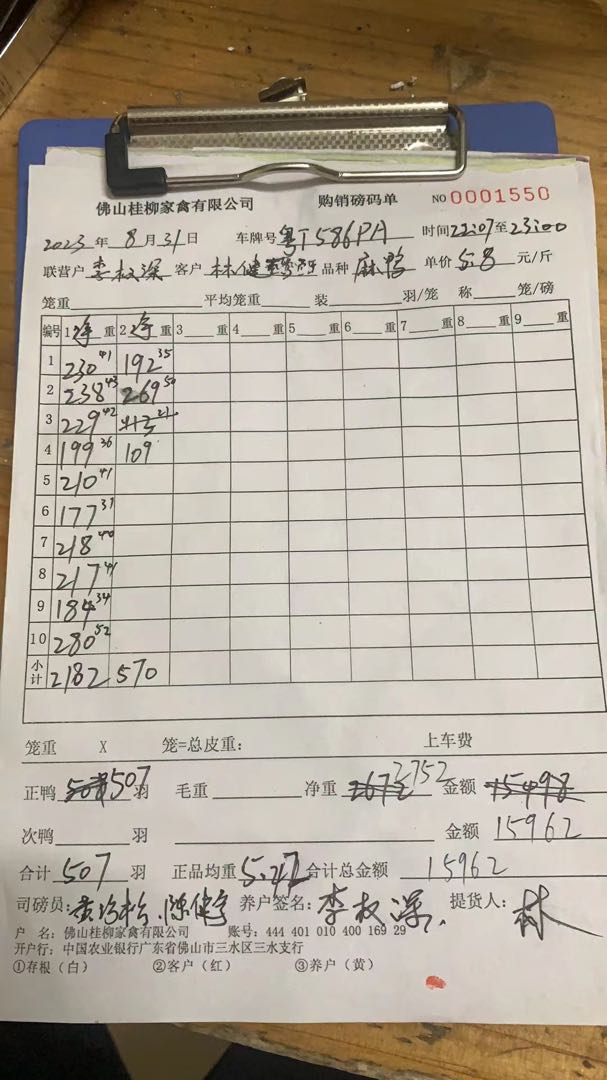 佛山桂柳家禽有限公司 购销磅码单 NO 0001550
2023年 8月31日 车牌号 粤T586PA 时间22:07至23:00
联营户 李权深 客户 林健 品种 麻鸭 单价 5.8 元/斤
笼重 平均笼重 装 羽/笼 称 笼/磅
编号 1净重 2净重 3 重 4 重 5 重 6 重 7 重 8 重 9 重
1 230 41 192 35
2 238 43 269 50
3 229 42 21
4 199 36 109
5 210 41
6 177 31
7 218 40
8 217 41
9 184 34
10 280 52
小计 2182 570
笼重 X 笼=总皮重: 上车费
正鸭 507 羽 毛重 净重 2672 2752 金额 15498
次鸭 羽 金额 15962
合计 507 羽 正品均重 5.42 合计总金额 15962
司磅员: 陈健 养户签名: 李权深 提货人: 林
户 名: 佛山桂柳家禽有限公司 账号: 444 401 010 400 169 29
开户行: 中国农业银行广东省佛山市三水区三水支行
①存根（白） ②客户（红） ③养户（黄）